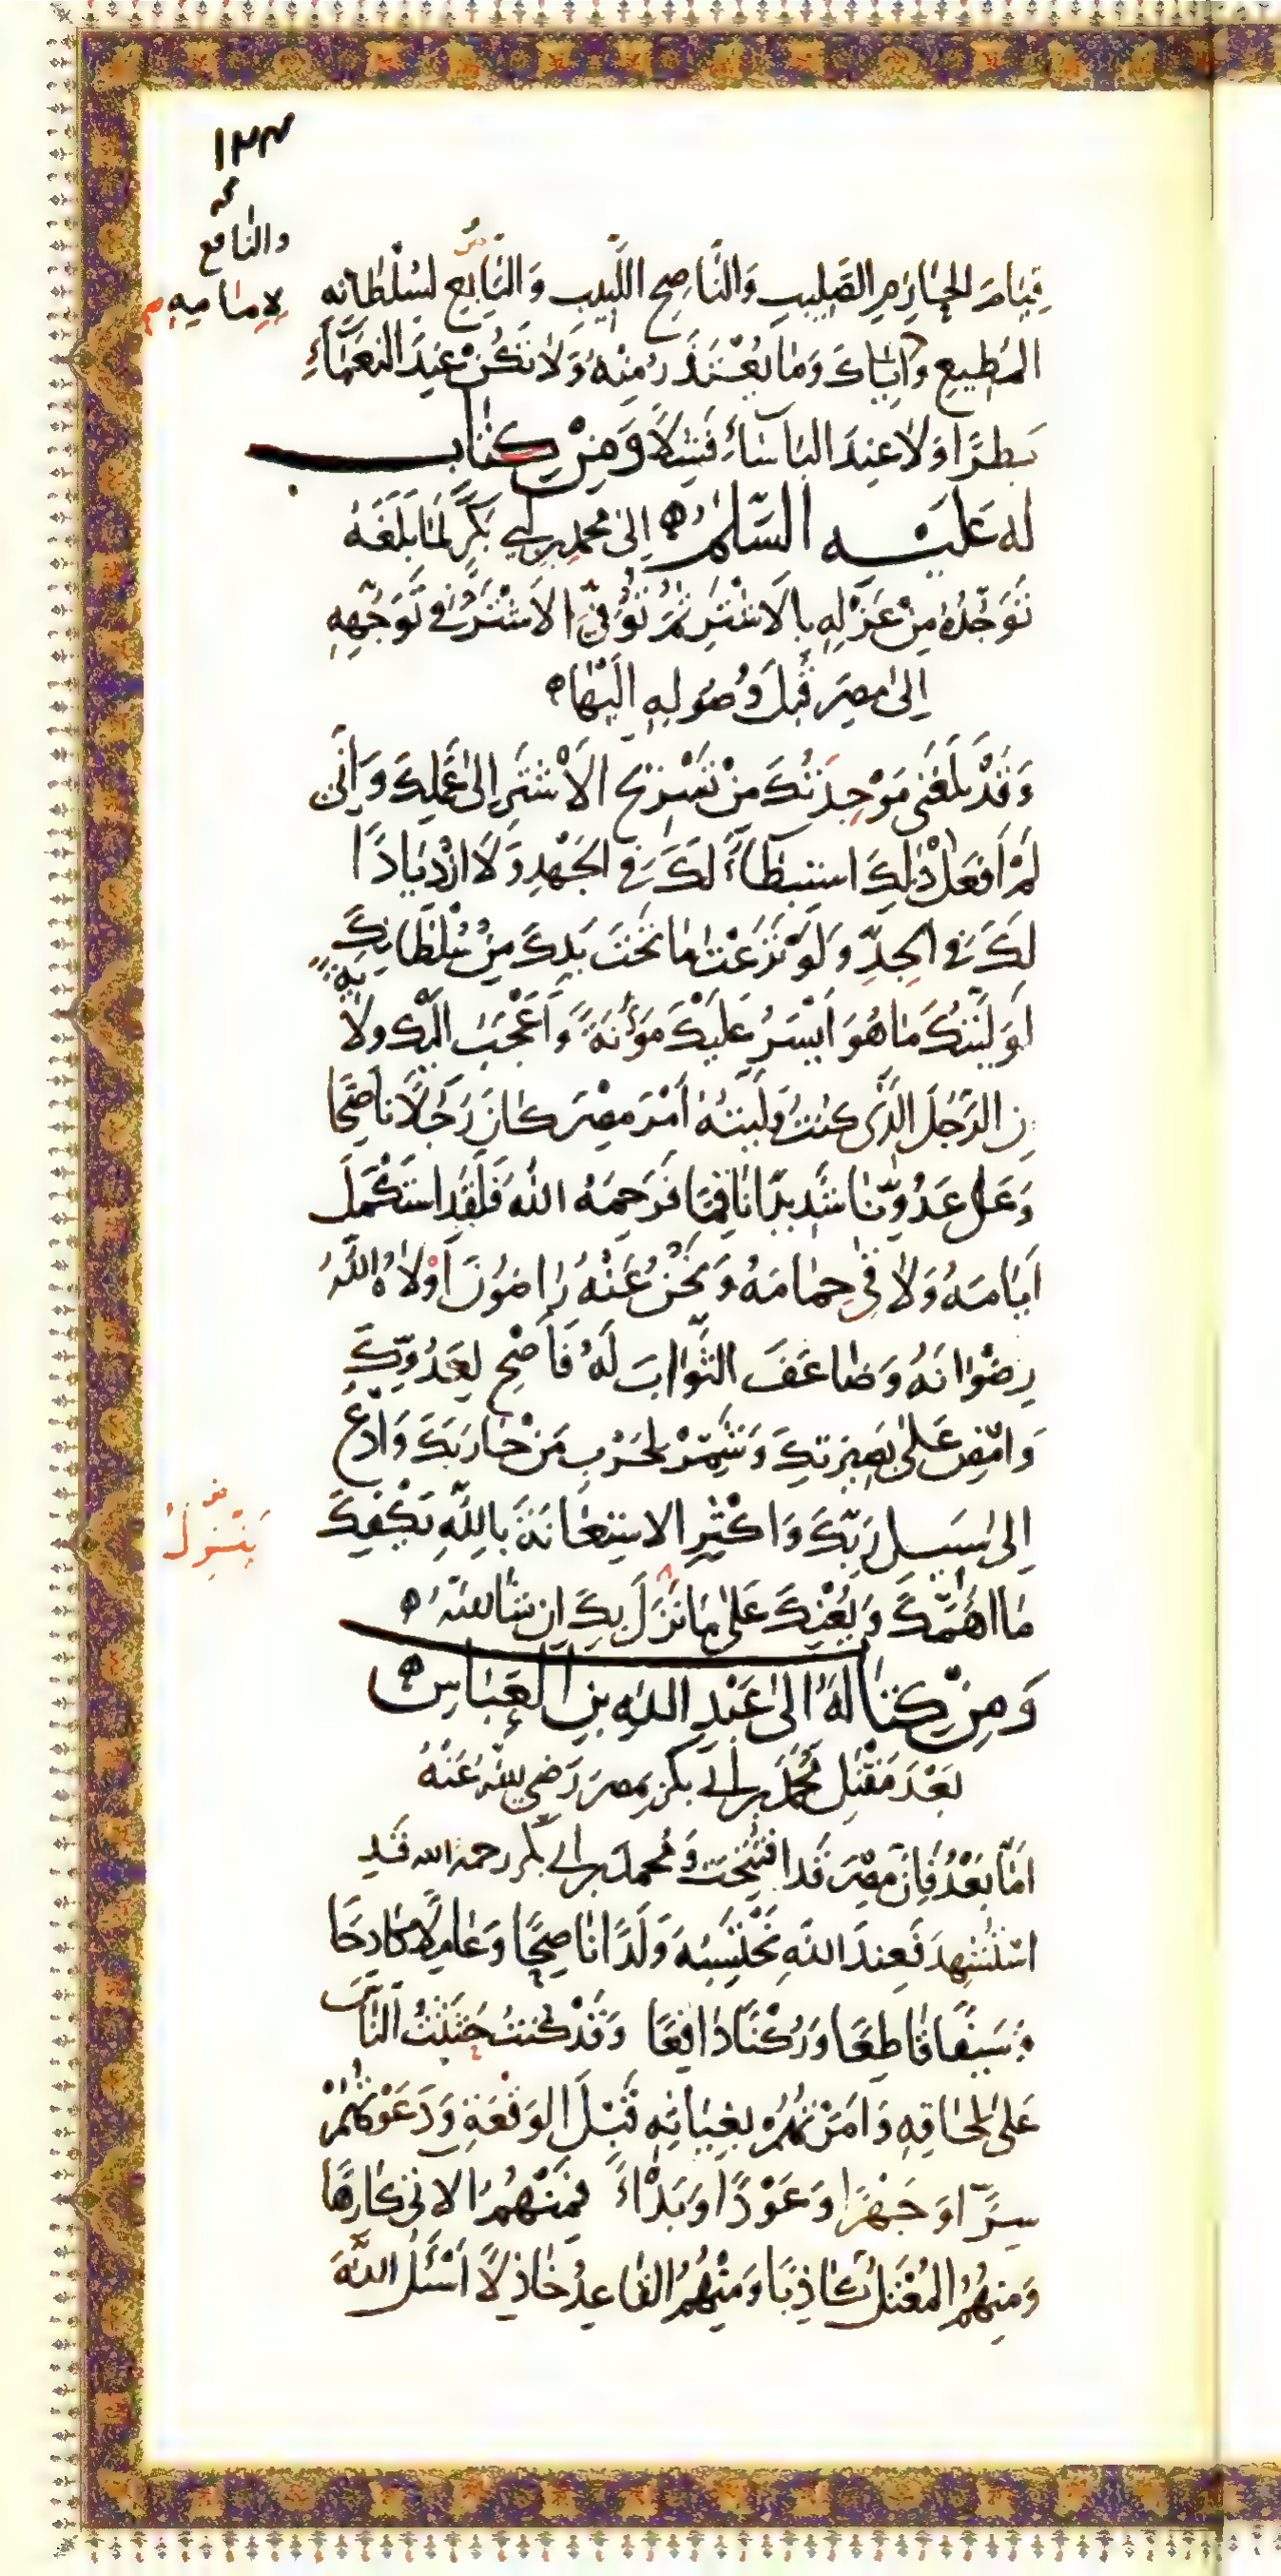 ١٢٣
والنافع
لامامه م
قِيَامَ الحَازِمِ الصَّلِيبِ وَالنَّاصِحِ اللَّبِيبِ وَالتَّابِعِ لسُلْطَانِهِ
المُطِيعِ وَايَّاكَ وَمَا يُعْتَذَرُ مِنْهُ وَلَا تَكُنْ عِنْدَ النَعمَاءِ
بَطِرًا وَلَا عِندَ البَأسَاءِ فَشِلًا وَمِنْ كِتَاب
لَهُ عَلَيْهِ السَّلَمُ اِلىٰ محمد بن ابي بَكْرٍ لَمّا بَلَغَهُ
تَوَجُّدُهُ مِنْ عَزْلِهِ بِالاَشْتَرِ ثُمَّ تُوُفِّيَ الاَشْتَرُ في تَوَجُّهِهِ
اِلىٰ مِصرَ قَبلَ وُصُولِهِ اِلَيْهَا
وَقَدْ بَلَغَنى مَوْجِدَتُكَ مِنْ تَسْرِيحِ الاَشْتَرِ اِلىٰ عَمَلِكَ وَاِنّى
لَمْ اَفعَلْ ذٰلِكَ استِبطَاءً لَكَ في الجَهْدِ وَلَا ازْدِيَادًا
لَكَ في الجِدِّ وَلَوْ نَزَعْتُ مَا تَحْتَ يَدِكَ مِنْ سُلْطَانِكَ
لَوَلَّيْتُكَ مَا هُوَ اَيْسَرُ عَلَيْكَ مَؤُنَةً وَاَعْجَبُ اِلَيْكَ ولَايَةً
اِنّ الرَّجُلَ الَّذى كُنتُ وَلَّيتُهُ اَمْرَ مِصْرَ كَانَ رَجُلًا نَاصِحًا
وَعَلىٰ عَدُوِّنَا شَدِيدًا نَاقِمًا فَرَحِمَهُ اللهُ فَلَقَدِ استَكْمَلَ
اَيّامَهُ وَلَاقى حِمَامَهُ وَنَحْنُ عَنْهُ رَاضُونَ اَوْلَاهُ اللهُ
رِضْوَانَهُ وَضَاعَفَ الثَّوَابَ لَهُ فَاَصْحِرْ لِعَدُوِّكَ
وَامْضِ عَلىٰ بَصِيرَتِكَ وَشَمِّرْ لِحَرْبِ مَنْ حَارَبَكَ وَادْعُ
اِلىٰ سَبيلِ رَبِّكَ وَاَكْثِرِ الاسْتِعَانَةَ بِاللهِ يَكْفِكَ
يَنْزِلُ
مَا اَهَمَّكَ وَيُعِنْكَ عَلىٰ مَا نَزَلَ بِكَ اِن شَاءَ اللهُ
وَمِنْ كِتَابٍ لَهُ اِلىٰ عَبْدِ اللهِ بنِ العَبّاسِ
بَعْدَ مَقْتَلِ مُحَمَّدِ بن ابي بكر بِمِصرَ رَضِيَ اللهُ عَنْهُ
اَمّا بَعْدُ فَاِنّ مِصْرَ قَد افتُتِحَت وَمُحمدَ بن ابي بكر رحمه الله قَدِ
اسْتُشْهِدَ فَعِندَ اللهِ نَحْتَسِبُهُ وَلَدًا نَاصِحًا وَعَامِلًا كَادِحًا
وَسَيفًا قَاطِعًا وَرُكْنًا دَافِعًا وَقَدْ كُنتُ حَثَثْتُ النَّاسَ
عَلىٰ لِحَاقِهِ وَاَمَرْتُهُمْ بِغِيَاثِهِ قَبْلَ الوَقْعَةِ وَدَعَوْتُهُمْ
سِرًّا وَجَهْرًا وَعَوْدًا وَبَدْاءً فَمِنْهُمُ الاتى كَارِهًا
وَمِنهُمُ المُعْتَلُّ كَاذِبًا وَمِنْهُمُ القَاعِدُ خَاذِلًا اَسْئَلُ اللهَ